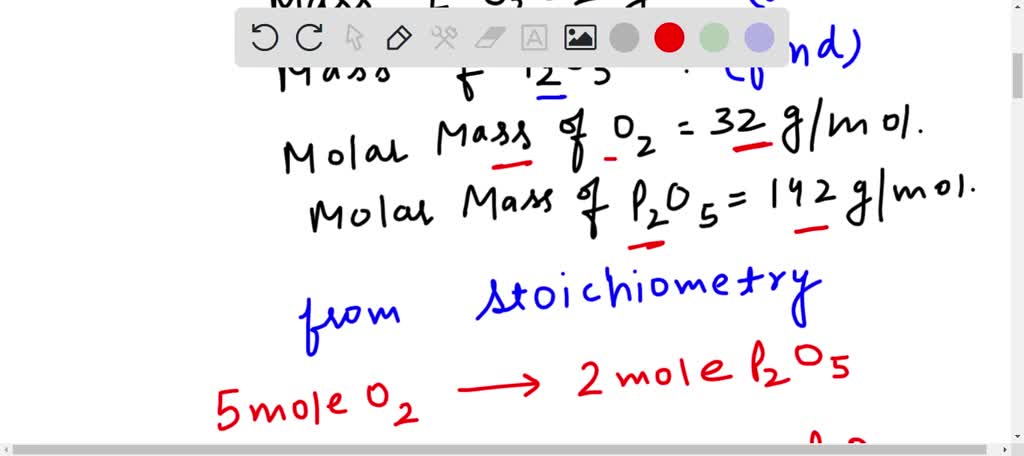 Mass of P2O5 : (find)
Molar Mass of O2 = 32 g/mol.
Molar Mass of P2O5 = 142 g/mol.
from stoichiometry
5 mole O2 → 2 mole P2O5